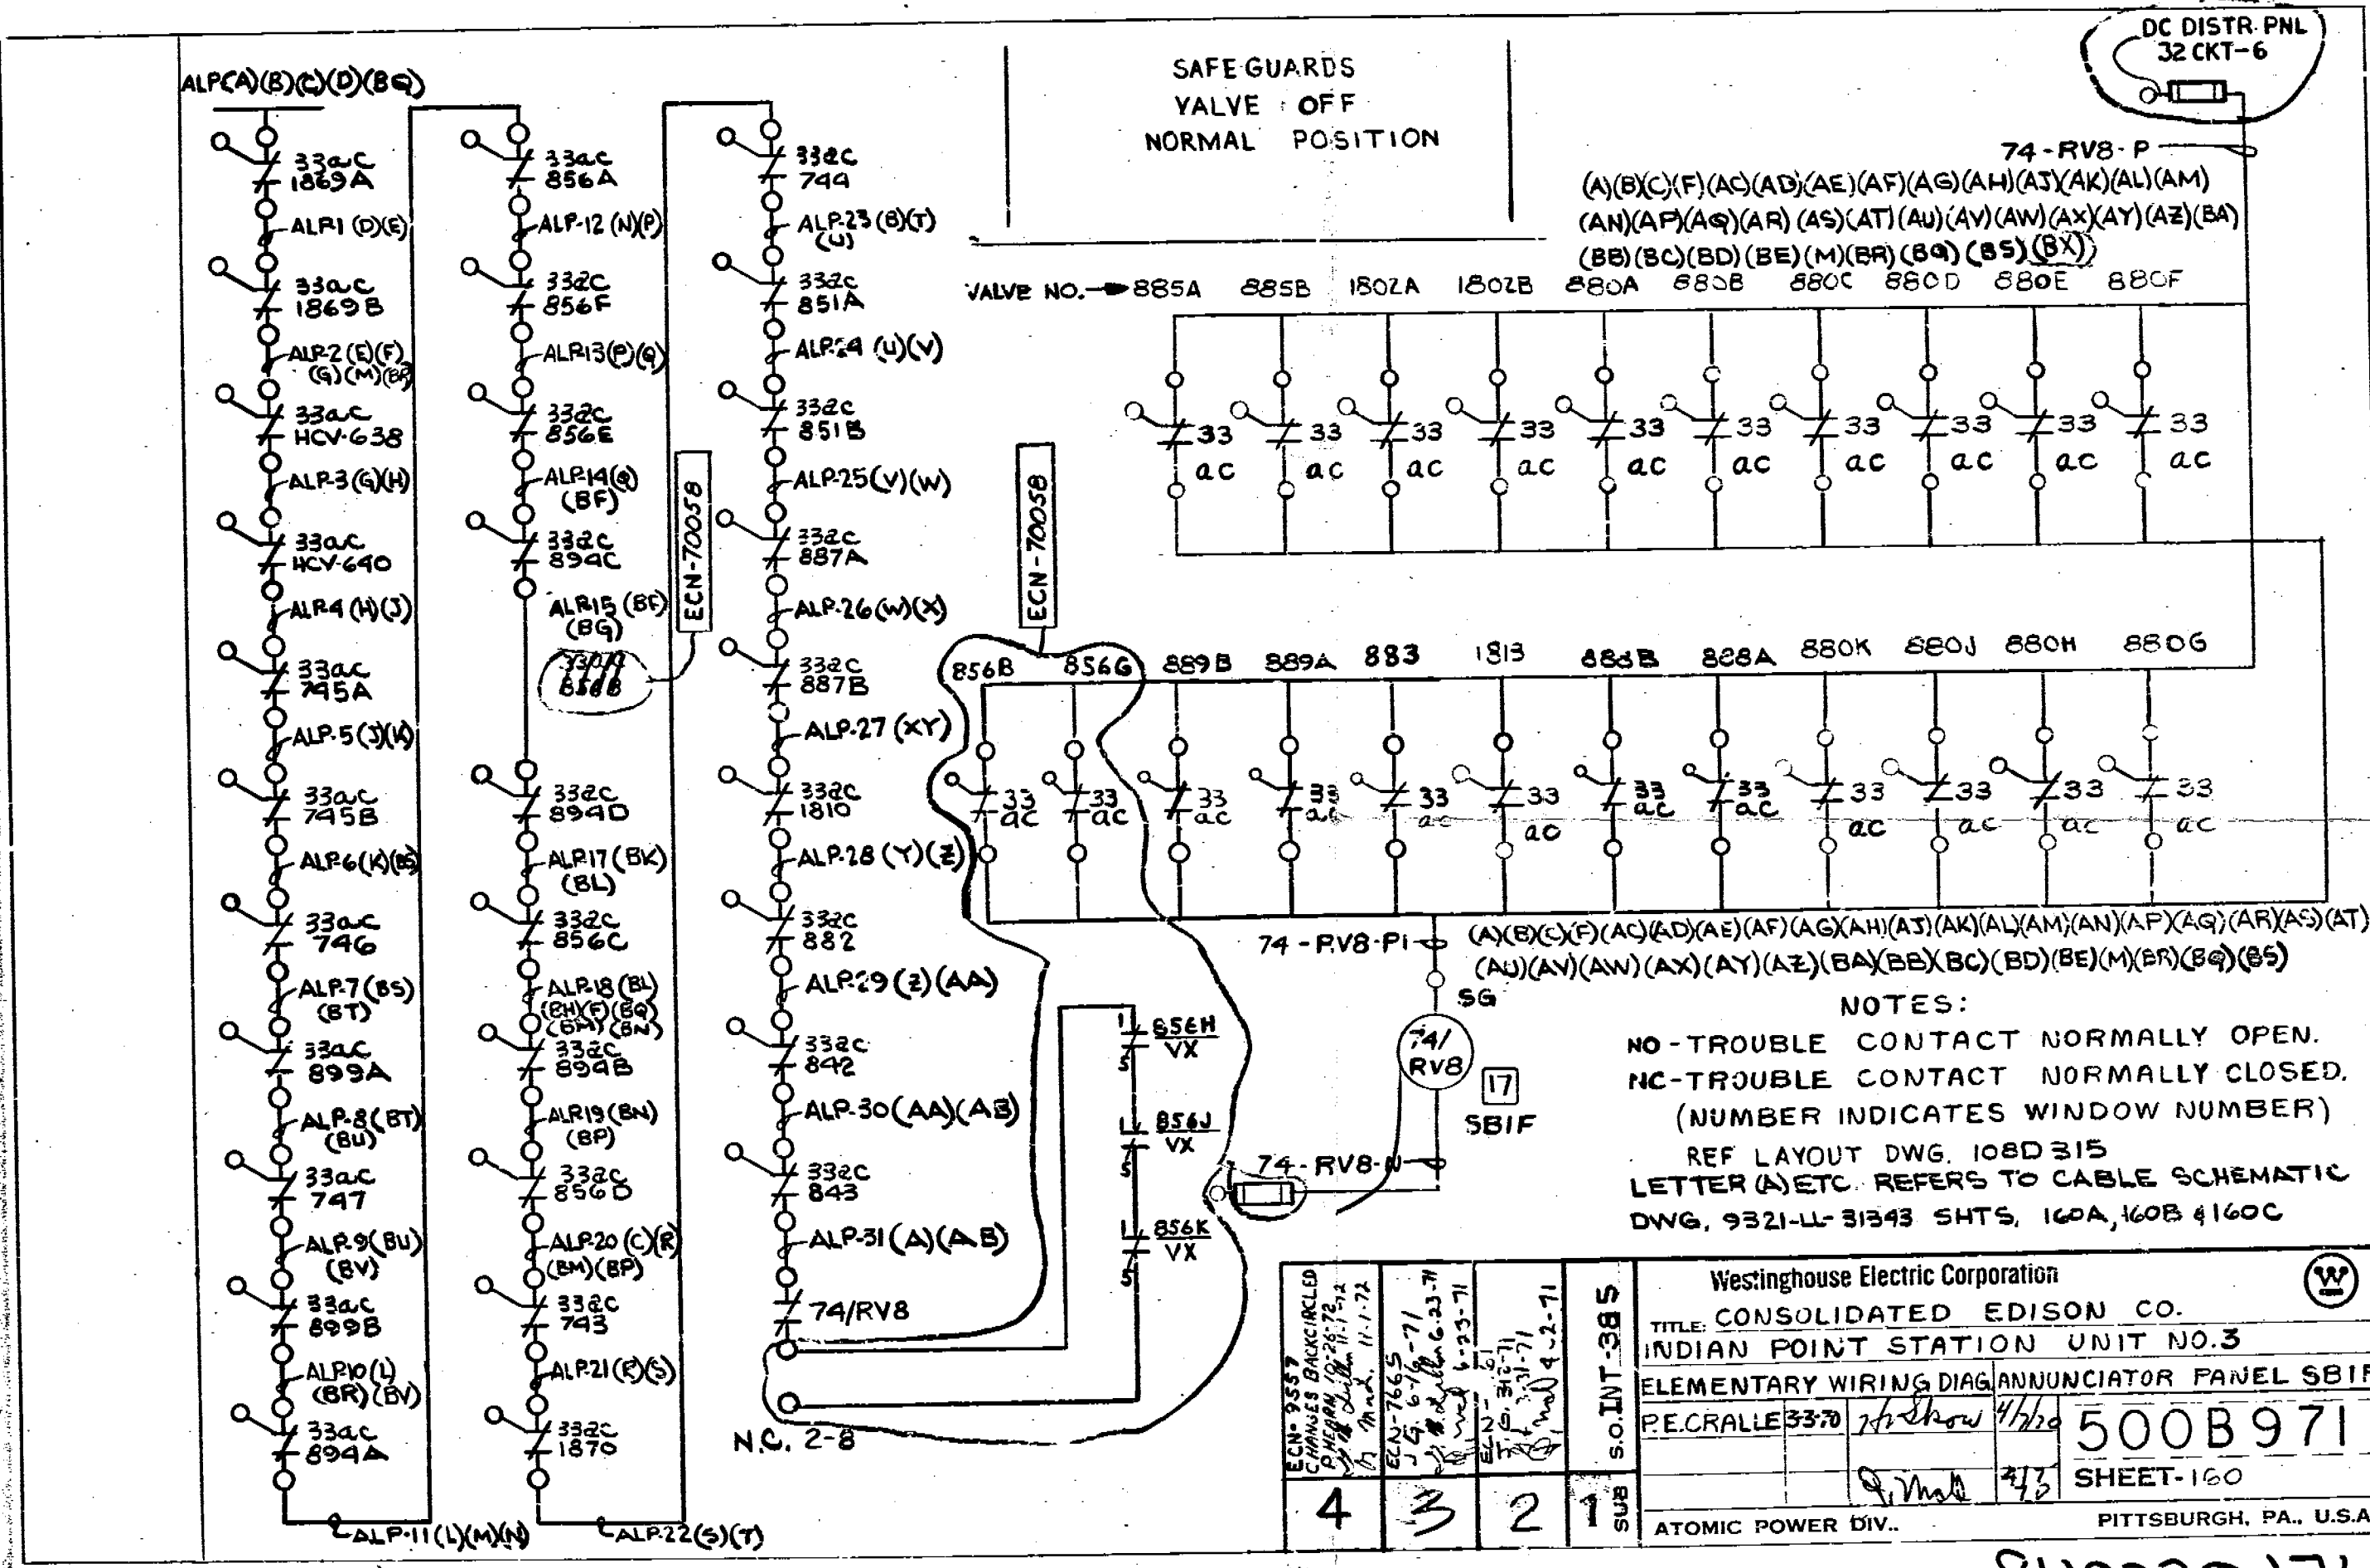 DC DISTR. PNL
32 CKT-6
SAFEGUARDS
VALVE OFF
NORMAL POSITION
ALP(A)(B)(C)(D)(BQ)
33ac
1869A
ALP.1 (D)(E)
33ac
1869B
ALP.2 (E)(F)
(G)(M)(BR)
33ac
HCV-638
ALP.3 (G)(H)
33ac
HCV-640
ALP.4 (H)(J)
33ac
745A
ALP.5 (J)(K)
33ac
745B
ALP.6 (K)(BS)
33ac
746
ALP.7 (BS)
(BT)
33ac
899A
ALP.8 (BT)
(BU)
33ac
747
ALP.9 (BU)
(BV)
33ac
899B
ALP.10 (L)
(BR)(BV)
33ac
894A
ALP-11 (L)(M)(N)
33ac
856A
ALP-12 (N)(P)
33ac
856F
ALP.13 (P)(Q)
33ac
856E
ALP.14 (Q)
(BF)
33ac
894C
ALP.15 (BF)
(BG)
ECN-70058
33ac
894D
ALP.17 (BK)
(BL)
33ac
856C
ALP.18 (BL)
(BH)(F)(BQ)
(BM)(BN)
33ac
894B
ALP.19 (BN)
(BP)
33ac
856D
ALP.20 (C)(R)
(BM)(BP)
33ac
743
ALP.21 (R)(S)
33ac
1870
ALP.22 (S)(T)
33ac
744
ALP-23 (B)(T)
(U)
33ac
851A
ALP.24 (U)(V)
33ac
851B
ALP.25 (V)(W)
33ac
887A
ALP.26 (W)(X)
33ac
887B
ALP.27 (XY)
33ac
1810
ALP.28 (Y)(Z)
33ac
882
ALP.29 (Z)(AA)
33ac
842
ALP-30 (AA)(AB)
33ac
843
ALP-31 (A)(AB)
74/RV8
N.C. 2-8
74-RV8-P
(A)(B)(C)(F)(AC)(AD)(AE)(AF)(AG)(AH)(AJ)(AK)(AL)(AM)
(AN)(AP)(AQ)(AR)(AS)(AT)(AU)(AV)(AW)(AX)(AY)(AZ)(BA)
(BB)(BC)(BD)(BE)(M)(BR)(BQ)(BS)(BX)
VALVE NO. 885A 885B 1802A 1802B 880A 880B 880C 880D 880E 880F
33 33 33 33 33 33 33 33 33 33
ac ac ac ac ac ac ac ac ac ac
ECN-70058
856B 856G 889B 889A 883 1813 888B 888A 880K 880J 880H 880G
33 33 33 33 33 33 33 33 33 33 33 33
ac ac ac ac ac ac ac ac ac ac ac ac
74-RV8-P1
(A)(B)(C)(F)(AC)(AD)(AE)(AF)(AG)(AH)(AJ)(AK)(AL)(AM)(AN)(AP)(AQ)(AR)(AS)(AT)
(AU)(AV)(AW)(AX)(AY)(AZ)(BA)(BB)(BC)(BD)(BE)(M)(BR)(BQ)(BS)
SG
74/
RV8
17
SB1F
74-RV8-N
1 856H
VX
5
1 856J
VX
5
1 856K
VX
5
NOTES:
NO-TROUBLE CONTACT NORMALLY OPEN.
NC-TROUBLE CONTACT NORMALLY CLOSED.
(NUMBER INDICATES WINDOW NUMBER)
REF LAYOUT DWG. 108D315
LETTER (A) ETC. REFERS TO CABLE SCHEMATIC
DWG. 9321-LL-31343 SHTS. 160A, 160B & 160C
ECN-9557
CHANGES BACKCIRCLED
P.HEARN 10-26-72
11-1-72
11-1-72
4
ECN-7665
J.G. 6-16-71
6-23-71
6-23-71
3
3-31-71
4-2-71
2
1
SUB
S.O. INT-385
Westinghouse Electric Corporation
W
TITLE: CONSOLIDATED EDISON CO.
INDIAN POINT STATION UNIT NO.3
ELEMENTARY WIRING DIAG ANNUNCIATOR PANEL SB1F
P.E.CRALLE 3-3-70
500B971
SHEET-160
ATOMIC POWER DIV..
PITTSBURGH, PA., U.S.A